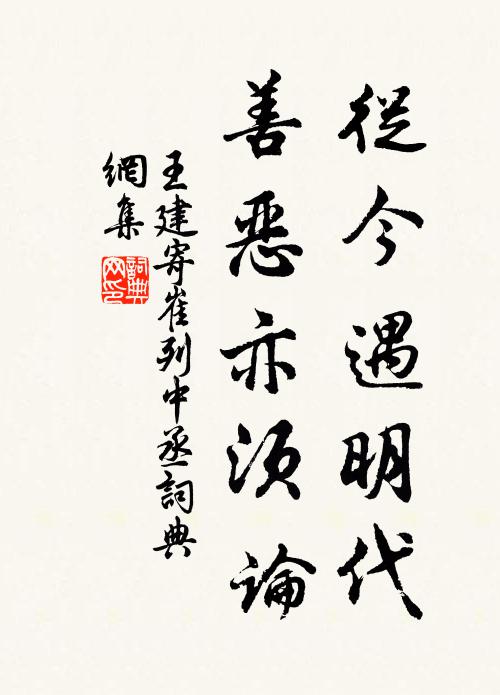 從今遇明代
善惡亦須論
王建寄崔列中丞詞典
網集
詞典
网印